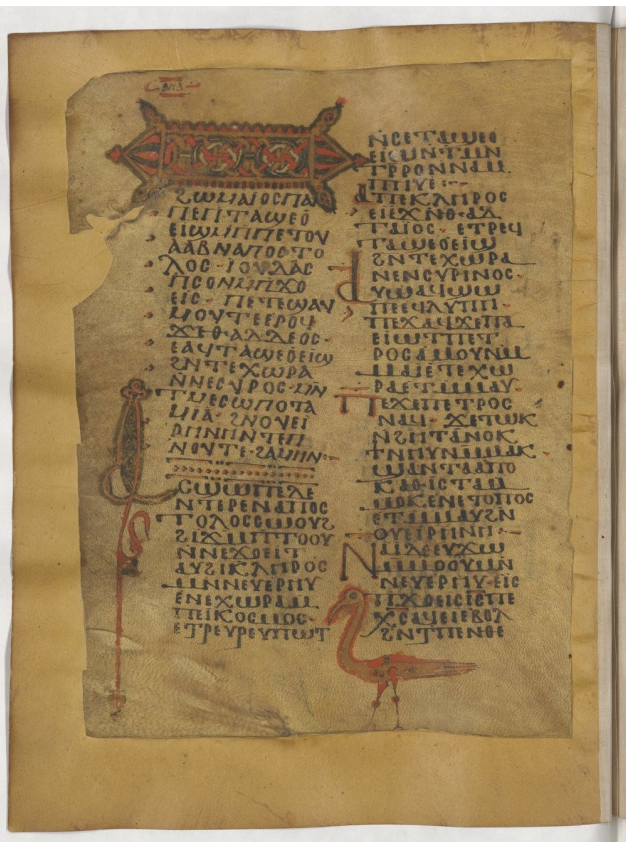 ϩⲱⲙⲁⲓⲟⲥⲡⲁ
ⲡⲉⲛⲧⲁϣⲉⲟ
ⲉⲓϣⲙⲡⲡⲉⲧⲟⲩ
ⲁⲁⲃⲛⲁⲡⲟⲥⲧⲟ
ⲗⲟⲥ · ⲓⲟⲩⲇⲁⲥ
ⲡⲥⲟⲛⲙⲡϫⲟ
ⲉⲓⲥ · ⲡⲉⲧⲉϣⲁⲩ
ⲙⲟⲩⲧⲉⲉⲣⲟϥ
ϫⲉⲑⲁⲗⲇⲉⲟⲥ ·
ⲉⲁϥⲧⲁϣⲉⲟⲉⲓϣ
ϩⲛⲧⲉⲭⲱⲣⲁ
ⲛⲛⲉⲥⲩⲣⲟⲥ · ⲙⲛ
ⲧⲙⲉⲥⲱⲡⲟⲧⲁ
ⲙⲓⲁ · ϩⲛⲟⲩⲉⲓ
ⲣⲏⲛⲏⲛⲧⲉⲡ
ⲛⲟⲩⲧⲉ · ϩⲁⲙⲏⲛ
ⲁⲥϣⲱⲡⲉⲇⲉ
ⲛⲧⲉⲣⲉⲛⲁⲡⲟⲥ
ⲧⲟⲗⲟⲥⲥⲱⲟⲩϩ
ϩⲓϫⲙⲡⲧⲟⲟⲩ
ⲛⲛⲉϫⲟⲉⲓⲧ
ⲁⲩϩⲓⲕⲗⲏⲣⲟⲥ
ⲙⲛⲛⲉⲩⲉⲣⲏⲩ
ⲉⲛⲉⲭⲱⲣⲁⲙ
ⲡⲉⲓⲕⲟⲥⲙⲟⲥ ·
ⲉⲧⲣⲉⲩⲣⲉⲩⲡⲱⲧ
ⲛⲥⲉⲧⲁϣⲉⲟ
ⲉⲓϣⲛⲧⲙⲛ
ⲧⲣⲣⲟⲛⲛⲙ
ⲡⲏⲩⲉ
ⲁⲡⲉⲕⲗⲏⲣⲟⲥ
ⲉⲓⲉϫⲛⲑⲁⲇ
ⲇⲁⲓⲟⲥ · ⲉⲧⲣⲉϥ
ⲧⲁϣⲉⲟⲉⲓϣ
ϩⲛⲧⲉⲭⲱⲣⲁ
ⲛⲛⲉⲛⲥⲩⲣⲓⲛⲟⲥ ·
ⲩϣⲁϥϣⲱ
ⲡⲉⲉϥⲗⲩⲡⲓ
ⲡⲉϫⲁϥϫⲉⲡⲁ
ⲉⲓⲱⲧⲡⲉⲧ
ⲣⲟⲥⲁⲙⲟⲩⲛⲙ
ⲙⲁⲓⲉⲧⲉⲭⲱ
ⲣⲁⲉⲧⲙⲙⲁⲩ ·
ⲡⲉϫⲉⲡⲉⲧⲣⲟⲥ
ⲛⲁϥ · ϫⲉⲧⲱⲕ
ⲛϩⲏⲧⲁⲛⲟⲕ
ϯⲛⲏⲩⲛⲙⲙⲁⲕ ·
ϣⲁⲛⲧⲁⲁⲡⲟ
ⲕⲁⲑⲓⲥⲧⲁⲙ
ⲙⲟⲕⲉⲛⲉⲧⲟⲡⲟⲥ
ⲉⲧⲙⲙⲁⲩϩⲛ
ⲟⲩⲉⲓⲣⲏⲛⲏ
ⲛⲁⲓⲇⲉⲉⲩϫⲱ
ⲙⲙⲟⲟⲩⲙⲛ
ⲛⲉⲩⲉⲣⲏⲩ · ⲉⲓⲥ
ⲡϫⲟⲉⲓⲥⲓⲥⲡⲉ
ⲭⲥⲁϥⲉⲓⲉⲃⲟⲗ
ϩⲛⲧⲡⲉⲛⲑⲉ